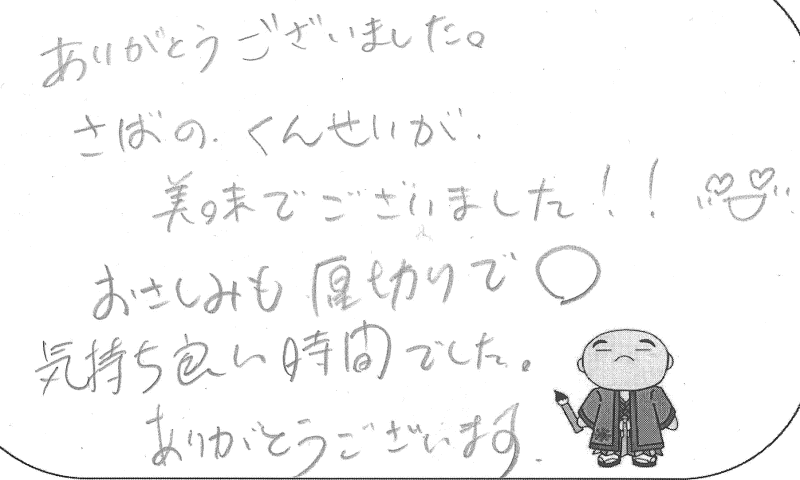 ありがとうございました。
さばの.くんせいが.
美味でございました!!
おさしみも厚切りで○
気持ち良い時間でした。
ありがとうございます.